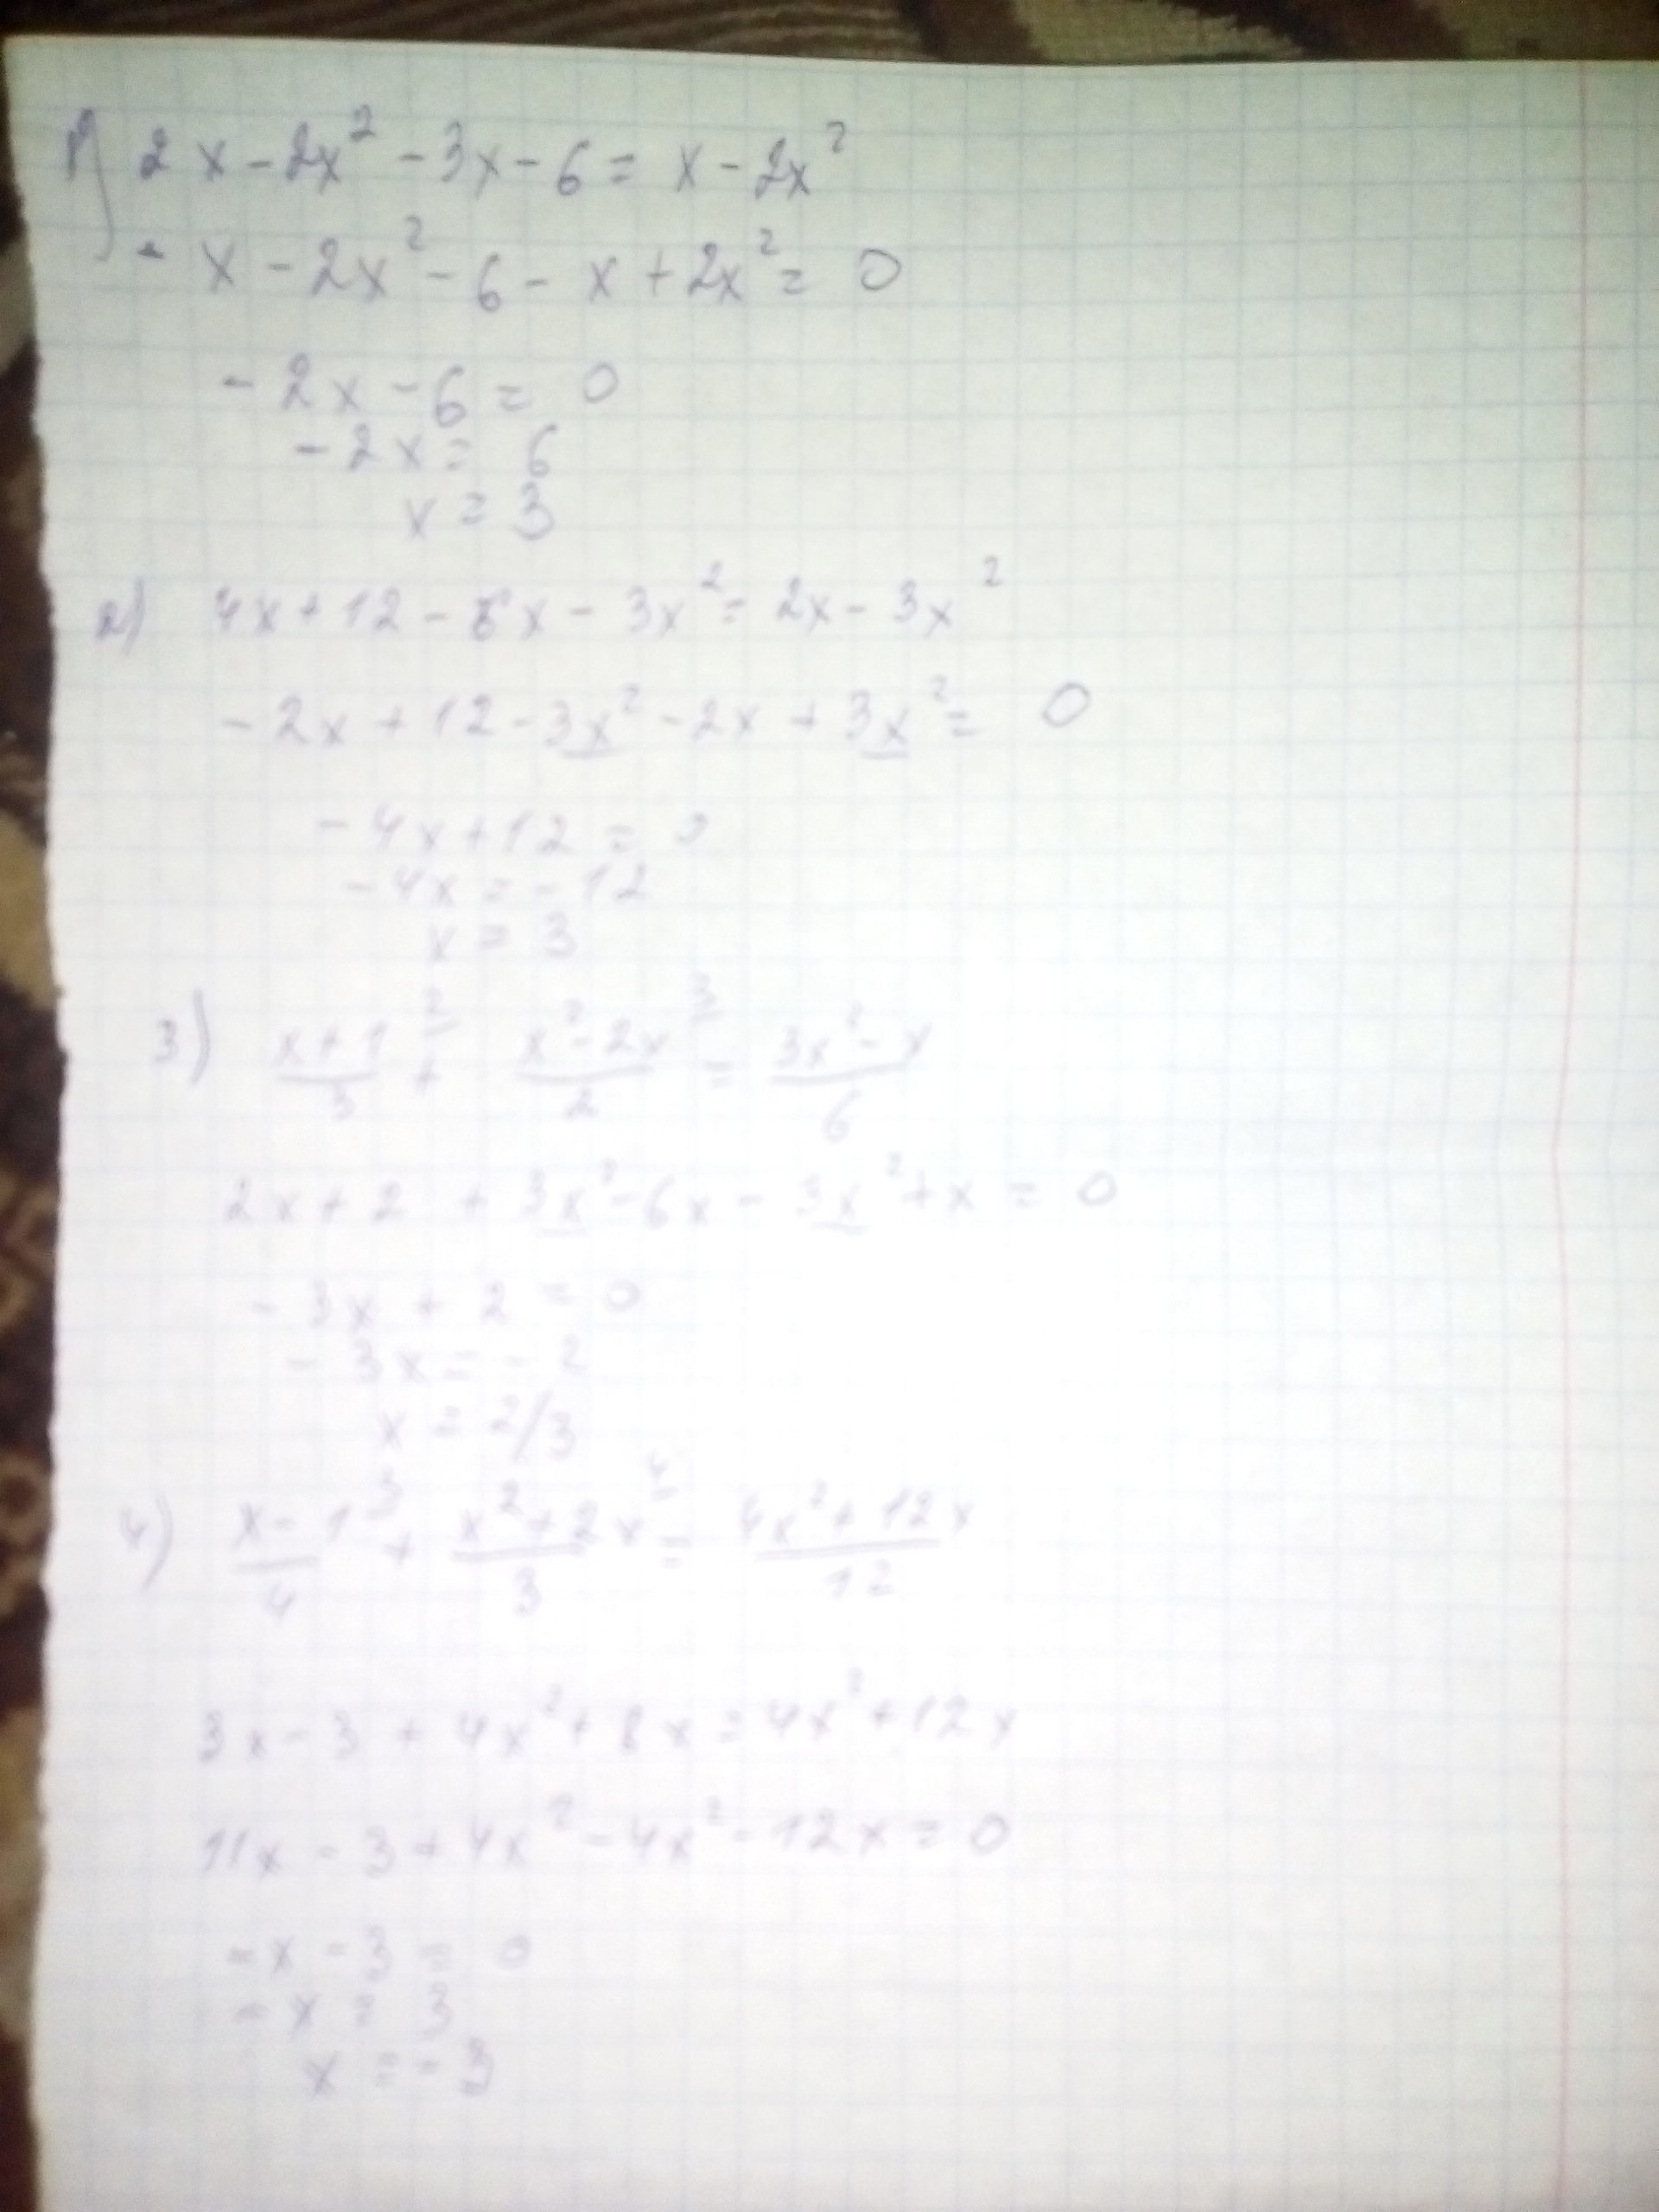 1) 2x - 2x² - 3x - 6 = x - 2x²
- x - 2x² - 6 - x + 2x² = 0
- 2x - 6 = 0
- 2x = 6
x = 3
2) 4x + 12 - 6x - 3x² = 2x - 3x²
- 2x + 12 - 3x² - 2x + 3x² = 0
- 4x + 12 = 0
- 4x = - 12
x = 3
3) (x + 1)/3 ² + (x² - 2x)/2 ³ = (3x² - x)/6
2x + 2 + 3x² - 6x - 3x² + x = 0
- 3x + 2 = 0
- 3x = - 2
x = 2/3
4) (x - 1)/4 ³ + (x² + 2x)/3 ⁴ = (4x² + 12x)/12
3x - 3 + 4x² + 8x = 4x² + 12x
11x - 3 + 4x² - 4x² - 12x = 0
- x - 3 = 0
- x = 3
x = - 3